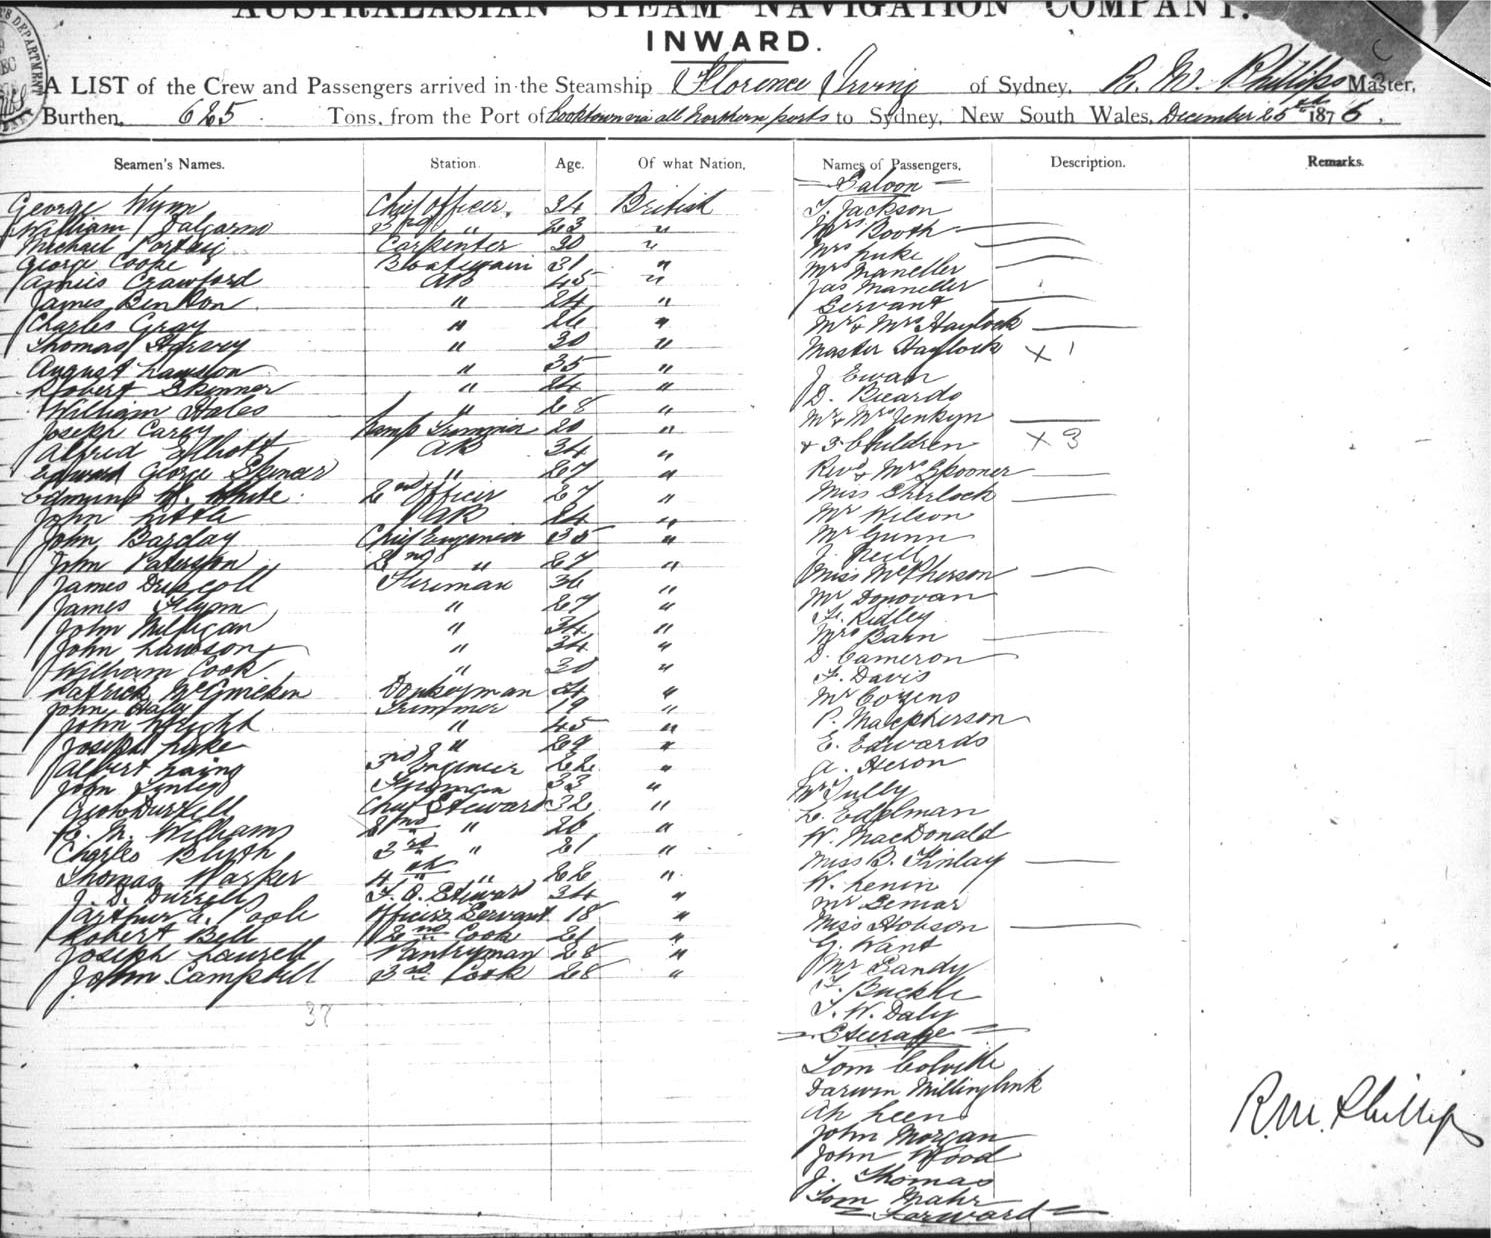 AUSTRALASIAN STEAM NAVIGATION COMPANY.
INWARD.
A LIST of the Crew and Passengers arrived in the Steamship Florence Irving of Sydney, R. M. Phillips Master,
Burthen, 625 Tons, from the Port of Cooktown via all Northern ports to Sydney, New South Wales, December 25th 1876.
Seamen's Names. Station. Age. Of what Nation, Names of Passengers, Description. Remarks.
= Saloon =
George Wynn Chief Officer, 34 British T. Jackson
William Dalgarno 3rd " 23 " Mrs Booth
Michael 30 " Mrs Luke
Carpenter
George Cooke Boatswain 31 " Mrs Maneller
James Crawford AB 45 " Jas Maneller
James Benton " 24 " Servant
Charles Gray " 26 " Mr & Mrs Haylock
Thomas Harvey " 30 " Master Haylock X 1
August Lawson " 35 " J Ewan
Robert Skinner " 24 " D. Ricardo
William Hales " 28 " Mr & Mrs Jenkyn
Joseph Carey Lamp Trimmer 20 " & 3 Children X 3
Alfred Elliott AB 34 " Revd & Mrs Spooner
Edward George Spencer " 27 " Miss Sherlock
Edmund H. White 2nd Officer 27 " Mr Wilson
John Little AB 24 " Mr Gunn
John Barclay Chief Engineer 35 " J. Neill
John Paterson 2nd " 27 " Miss McPherson
James Driscoll Fireman 36 " Mr Donovan
James Flynn " 27 " F. Ridley
John Milligan " 34 " Mrs Bahn
John Lawson " 34 " D. Cameron
William Cook " 30 " F. Davis
Patrick McGucken Donkeyman 24 " Mr Cozens
John Haly Trimmer 19 " P. Macpherson
John Wright " 45 " E. Edwards
Joseph Lake " 29 " A. Heron
Albert Laing 3rd Engineer 22 " Mr Tully
John Finlay Fireman 33 " L. Edelman
Geo Durrell Chief Steward 32 " W. MacDonald
R. M. Williams 2nd " 26 " Miss B. Finlay
Charles Blyth 3rd " 21 " W. Lenin
Thomas Warker 4th " 22 " Mr Lemar
J. D. Durrell F. C. Steward 34 " Miss Hobson
Arthur E. Poole Officers Servant 18 " G. Want
Robert Bell 2nd Cook 21 " Mr Gandy
Joseph Laurell Pantryman 28 " F. Buckle
John Campbell 3rd Cook 28 " T. W. Daly
37
= Steerage =
Tom Colville
Darwin
Ah Leen
John Morgan
John Wood
J. Thomas
Tom Mahr
= Forward =
R.M. Phillips